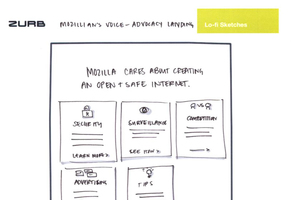 ZURB
MOZILLIAN'S VOICE – ADVOCACY LANDING
Lo-fi Sketches
MOZILLA CARES ABOUT CREATING
AN OPEN + SAFE INTERNET.
SECURITY
SURVEILLANCE
VS
COMPETITION
LEARN MORE >
SEE HOW >
ADVERTISING
TIPS